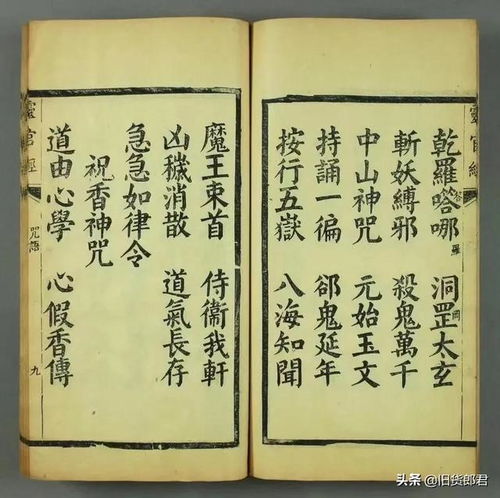 靈官經
乾羅嗒哪羅 洞罡岡太玄
斬妖縛邪 殺鬼萬千
中山神咒 元始玉文
持誦一徧 郤鬼延年
按行五嶽 八海知聞
魔王束首 侍衞我軒
凶穢消散 道氣長存
急急如律令
祝香神咒
道由心學 心假香傳
靈官經 咒語 九
头条 @旧货郎君